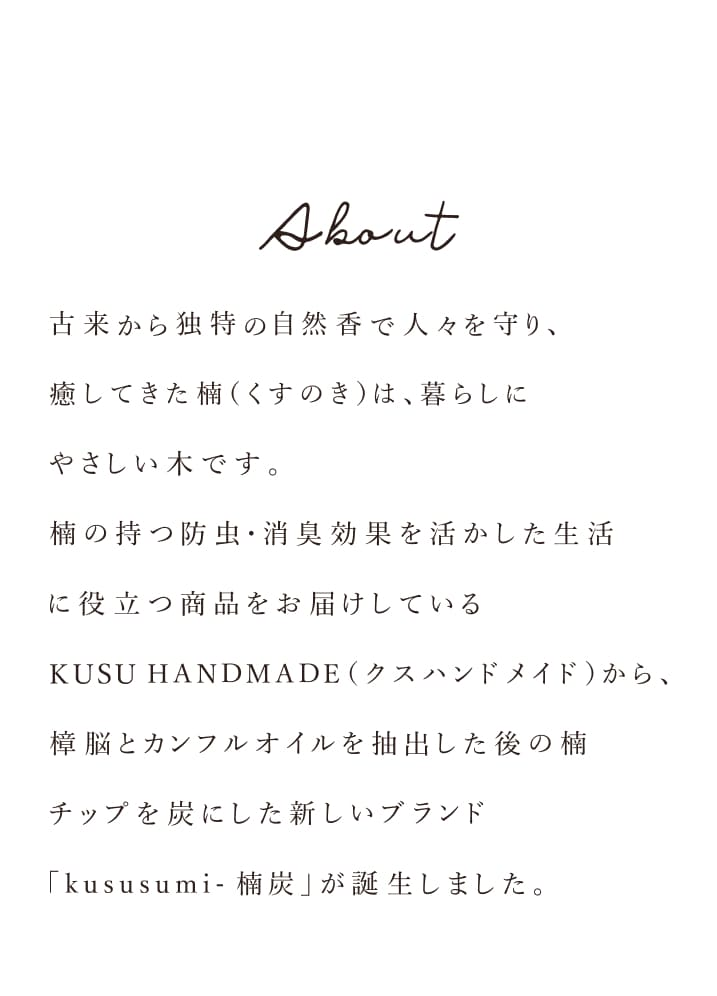 About
古来から独特の自然香で人々を守り、
癒してきた楠（くすのき）は、暮らしに
やさしい木です。
楠の持つ防虫・消臭効果を活かした生活
に役立つ商品をお届けしている
KUSU HANDMADE（クスハンドメイド）から、
樟脳とカンフルオイルを抽出した後の楠
チップを炭にした新しいブランド
「kususumi-楠炭」が誕生しました。